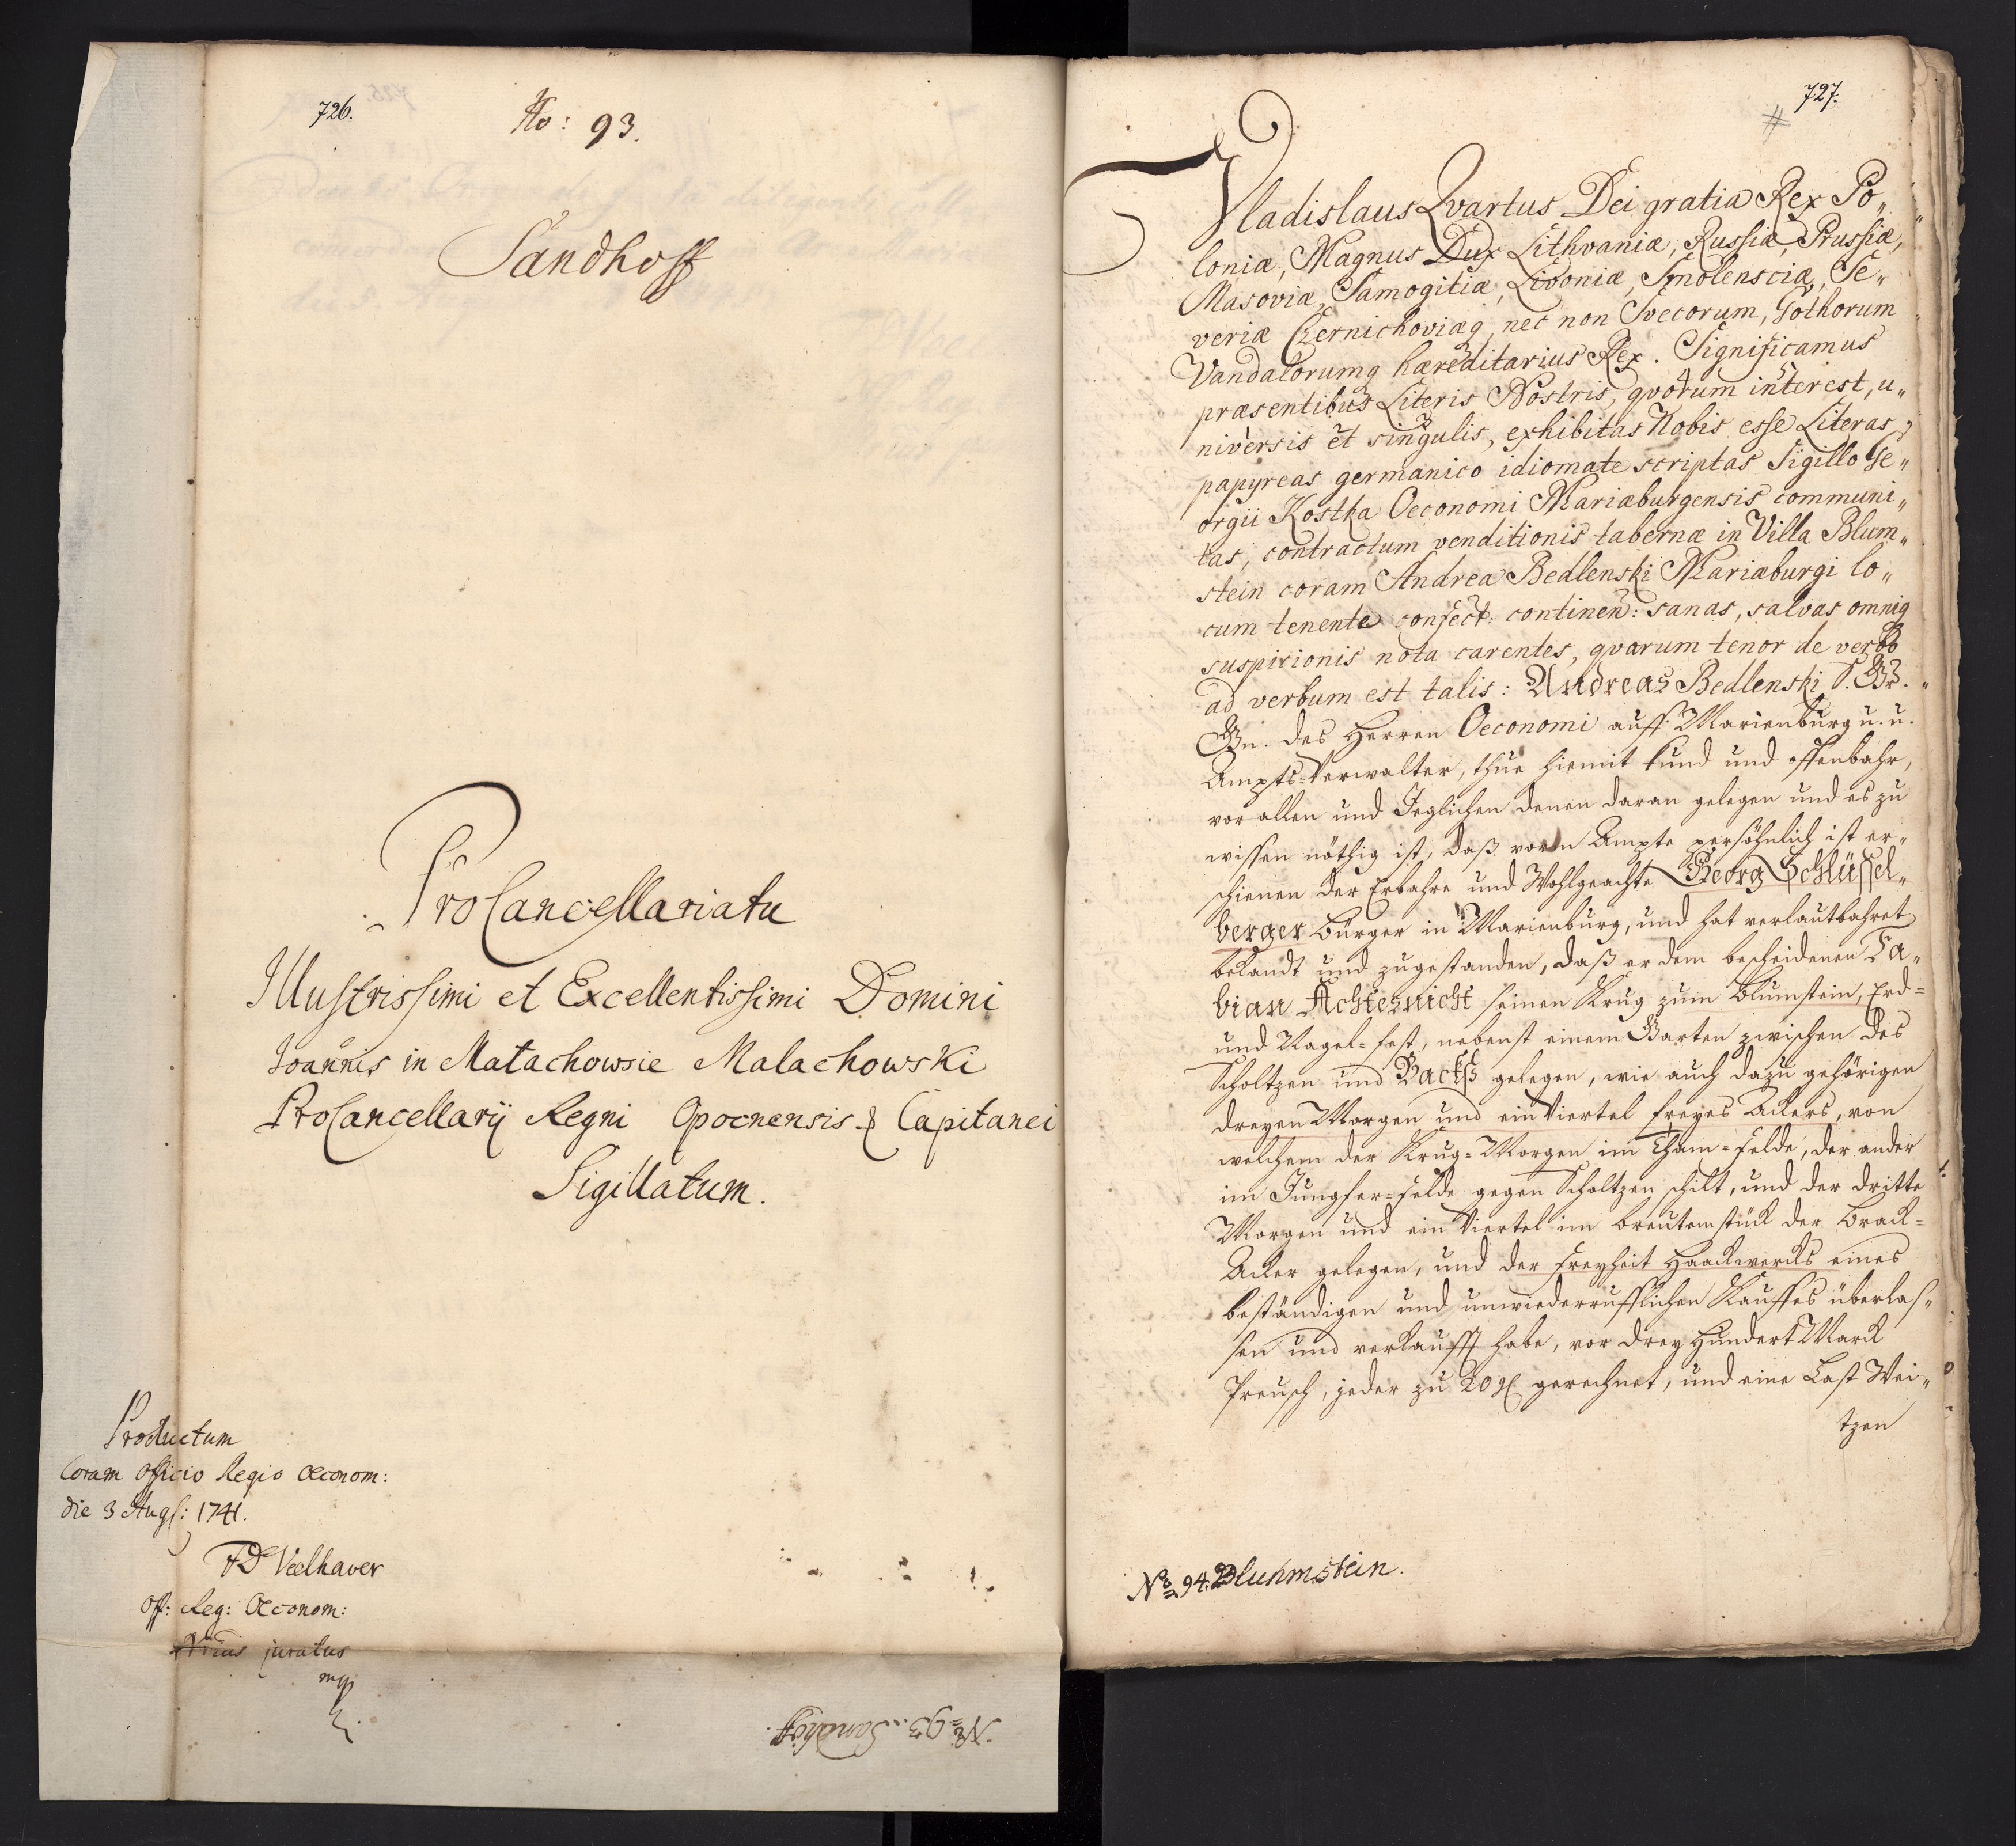 726.
No: 93.
Sandhoff
ProCancellariatu
Illustrissimi et Excellentissimi Domini
Joannis in Małachowice Małachowski
ProCancellarÿ Regni Opocnensis & Capitanei
Sigillatum.
Productum
Coram Officio Regio Œconom:
die 3 Aug: 1741.
FD Veelhaver
Off: Reg: Œconom:
Nrius juratus
mp
No 93. Sandhoff.
727.
#
Vladislaus Qvartus Dei gratia Rex Po„
loniæ, Magnus Dux Lithvaniæ, Russiæ, Prussiæ,
Masoviæ, Samogitiæ, Livoniæ, Smolensciæ, Se„
veriæ Czernichoviæq, nec non Svecorum, Gothorum
Vandalorumq hæreditarius Rex. Significamus
præsentibus Literis Nostris, qvorum interest, u„
niversis et singulis, exhibitas Nobis esse Literas
papyreas germanico idiomate scriptas Sigillo Ge„
orgii Kostka Oeconomi Mariæburgensis communi„
tas, contractum venditionis tabernæ in Villa Blum„
stein coram Andrea Bedlenski Mariæburgi lo„
cum tenente confect: continen: sanas, salvas omniq
suspicionis nota carentes, qvarum tenor de verbo
ad verbum est talis: Andreas Bedlenski S. Gr.
Gn. des Herren Oeconomi auff Marienburg u. u.
Ampts-Verwalter, thue hiemit kund und offenbahr,
vor allen und Jeglichen denen daran gelegen und es zu
wissen nöthig ist, daß vorm Ampte persöhnlich ist er„
schienen der Erbahre und Wohlgeachte Georg Schlüssel„
berger Bürger in Marienburg, und hat verlautbahret
bekandt und zugestanden, daß er dem bescheidenen Fa„
bian Achtesnicht seinen Krug zum Blumstein, Erd-
und Nagel-fest, nebenst einem Garten zwischen des
Scholtzen und Backß gelegen, wie auch dazu gehörigen
dreyen Morgen und ein Viertel freyes Ackers, von
welchem der Krug-Morgen im Tham-felde, der ander
im Jungfer-felde gegen Scholtzen schilt, und der dritte
Morgen und ein Viertel im breutenstück der Brack-
Acker gelegen, und der Freyheit Haackwercks eines
beständigen und unwiederrufflichen Kauffes überlas„
sen und verkaufft habe, vor drey Hundert Marck
Preusch, jeder zu 20 gl gerechnet, und eine Last Wei„
tzen
No 94. Bluhmstein.